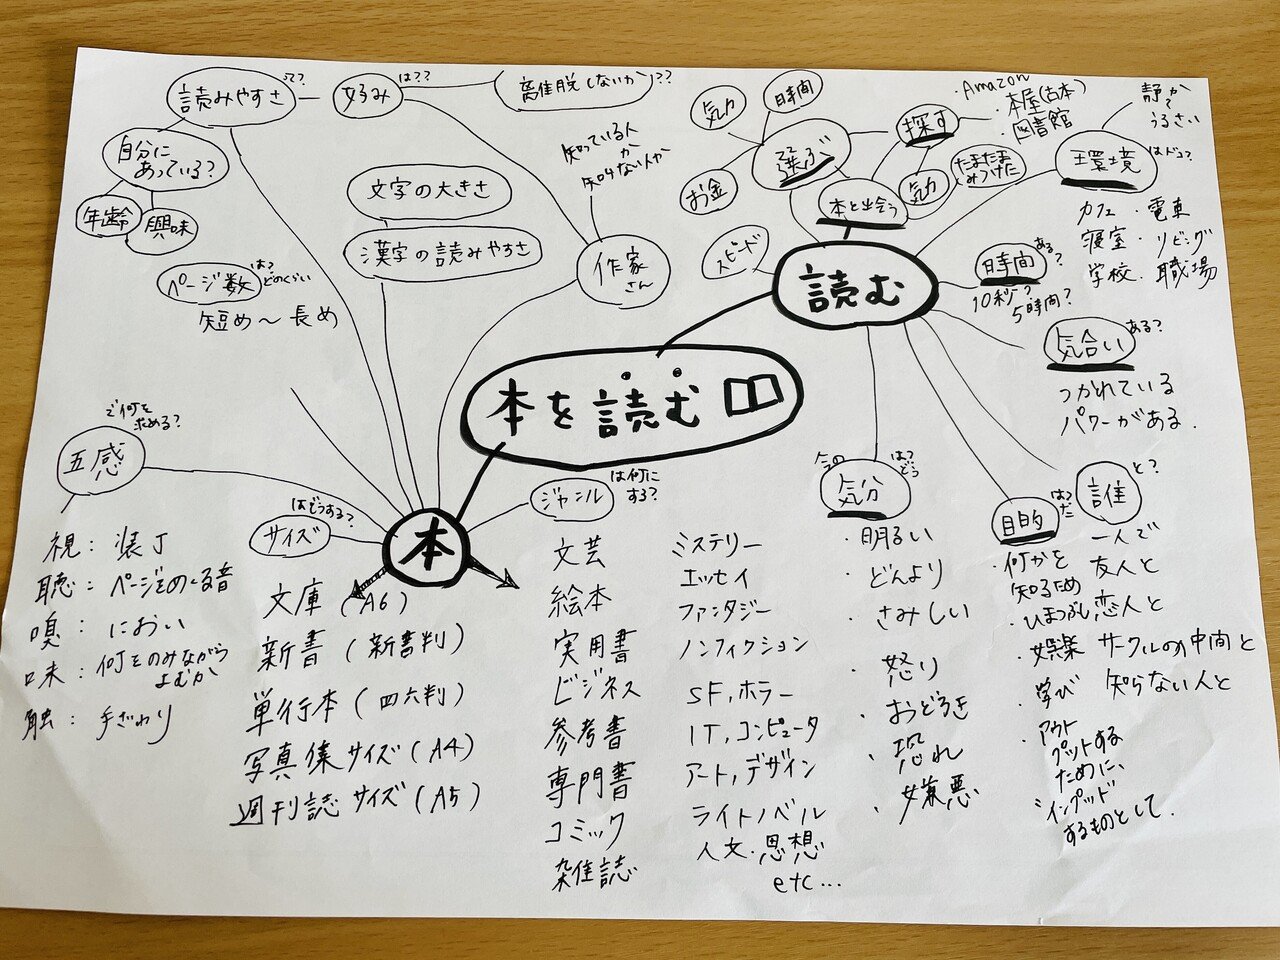 本を読む
本
読む
読みやすさ
って?
好み
は??
離脱しないか??
自分に
あっている?
年齢
興味
文字の大きさ
漢字の読みやすさ
ページ数
は?
どのくらい
短め〜長め
知っている人
か
知らない人か
作家
さん
五感
で何を
求める?
視:装丁
聴:ページをめくる音
嗅:におい
味:何をのみながら
よむか
触:手ざわり
サイズ
はどうする?
文庫(A6)
新書(新書判)
単行本(四六判)
写真集サイズ(A4)
週刊誌サイズ(A5)
ジャンル
は何に
する?
文芸
絵本
実用書
ビジネス
参考書
専門書
コミック
雑誌
ミステリー
エッセイ
ファンタジー
ノンフィクション
SF,ホラー
IT,コンピュータ
アート,デザイン
ライトノベル
人文・思想
etc...
気力
時間
お金
選ぶ
探す
・Amazon
・本屋(古本)
・図書館
本と出会う
気力
たまたま
みつけた
スピード
環境
はドコ?
静か
で
うるさい
カフェ・電車
寝室・リビング
学校・職場
時間
ある?
10秒?
5時間?
気合い
ある?
つかれている
パワーがある.
今の
気分
は?
どう
・明るい
・どんより
・さみしい
・怒り
・おどろき
・恐れ
・嫌悪
目的
は?
だ
・何かを
知るため
・ひまつぶし
・娯楽
・学び
・アウト
プットする
ために、
インプット
するものとして.
誰
と?
一人で
友人と
恋人と
サークルの仲間と
知らない人と